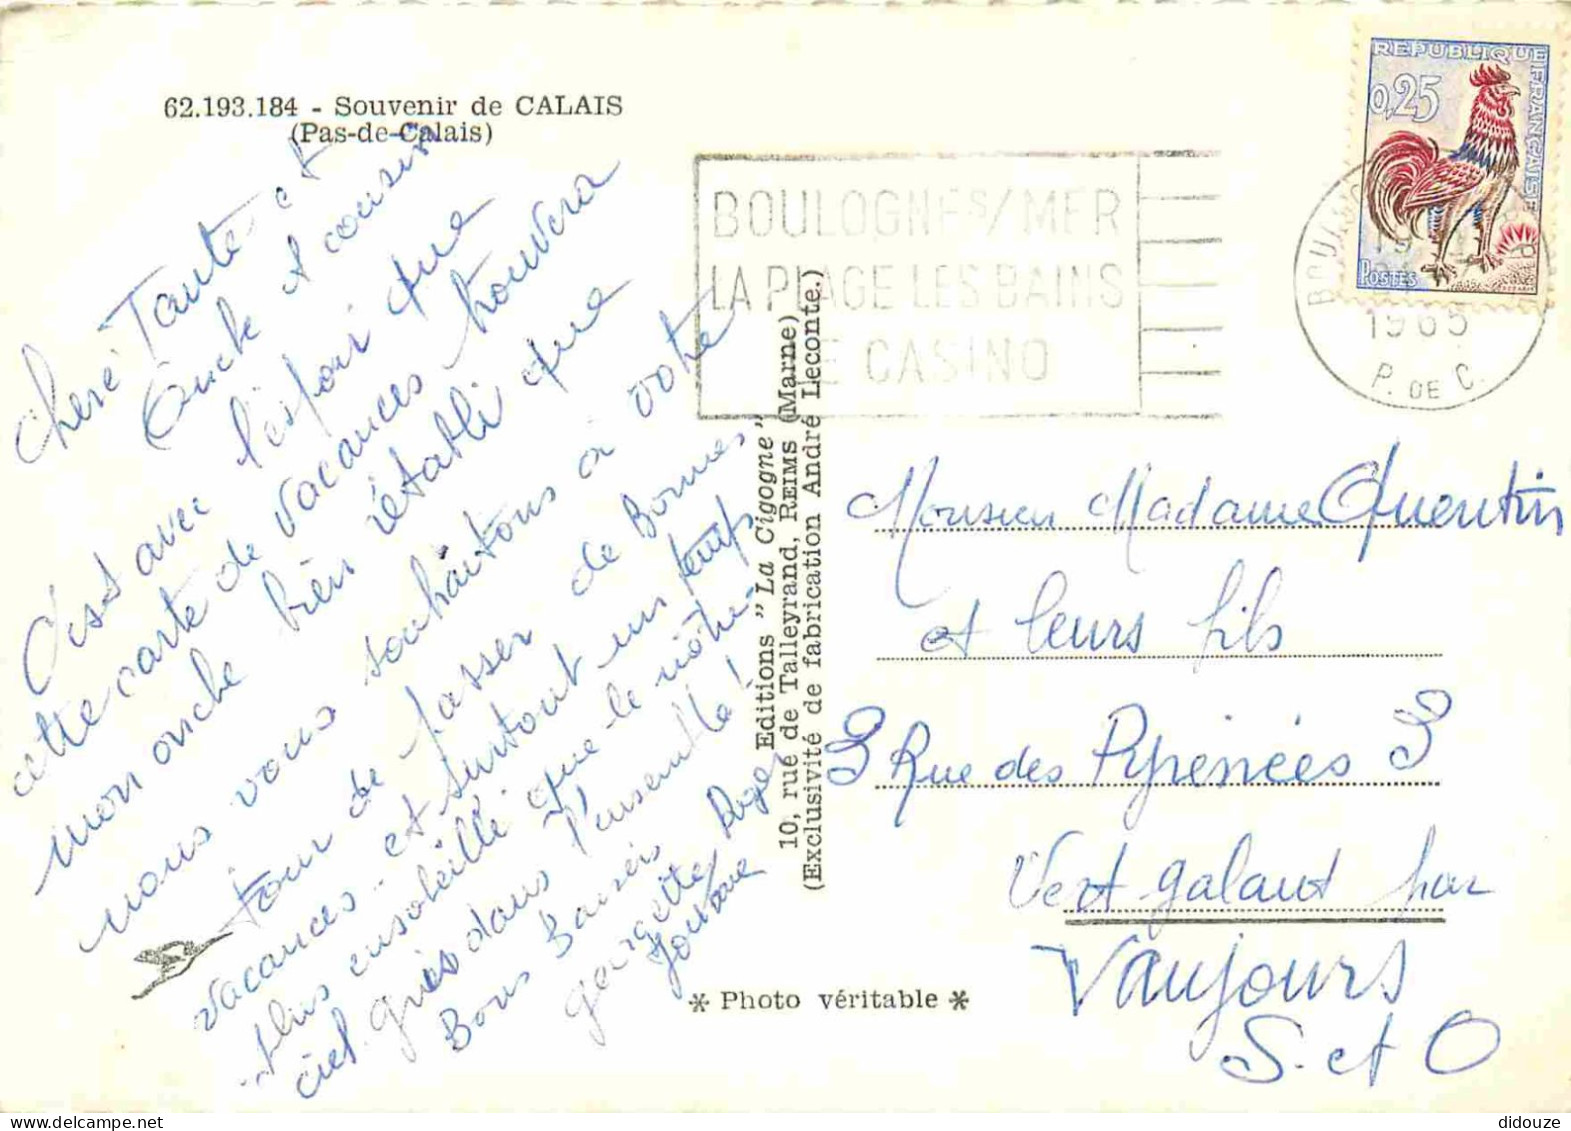 62.193.184 - Souvenir de CALAIS
(Pas-de-Calais)
Cheré Tante et
Oncle et cousin
C'est avec l'espoir que
cette carte de vacances trouvera
mon oncle bien rétabli que
nous vous souhaitons à votre
tour de passer de Bonnes
vacances - et surtout un temps
plus ensoleillé que le nôtre
ciel gris dans l'ensemble!
Bons Baisers
georgette Roger
Editions "La Cigogne"
10, rue de Talleyrand, REIMS (Marne)
(Exclusivité de fabrication André Leconte.)
* Photo véritable *
BOULOGNE S/MER
LA PLAGE LES BAINS
LE CASINO
REPUBLIQUE FRANÇAISE
0,25
POSTES
1965
P. DE C.
Monsieur Madame Quentin
et leurs fils
3 Rue des Pyrénées 3
Vert galant par
Vaujours
S. et O
didouze